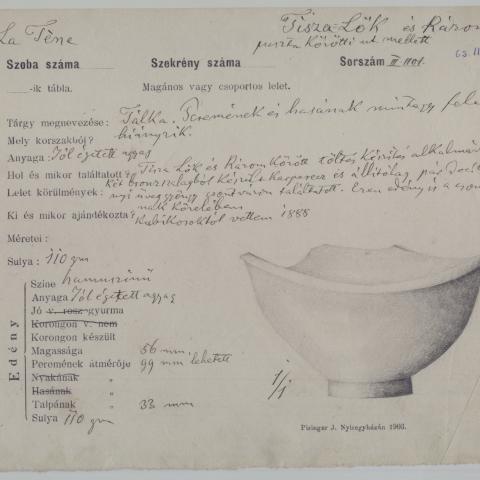 La Tène
Tisza-Lök és Rázom
puszta Közötti ut mellett
Szoba száma
Szekrény száma
Sorszám III. 1101.
63. II
-ik tábla.
Magános vagy csoportos lelet.
Tárgy megnevezése: Tálka. Peremének és hasának mintegy fele
Mely korszakból? hiányzik.
Anyaga: Jól égetett agyag
Hol és mikor találtatott? Tisza Lök és Rázom között töltés készítés alkalmával
Lelet körülmények: két bronz szalagból készült karperecz és állítólag pár
nyi üveggyöngy csontváron találtatott. Ezen edény is a
nak közelében
Ki és mikor ajándékozta? Kubikosoktól vettem 1888
Méretei:
Sulya: 110 gm
Edény
Szine hamuszinü
Anyaga Jól égetett agyag
Jó v. rosz gyurma
Korongon v. nem
Korongon készült
Magassága 56 mm
Peremének átmérője 99 mm lehetett
Nyakának "
Hasának "
Talpának " 33 mm
Sulya 110 gm
1/1
Pisinger J. Nyiregyházán 1903.